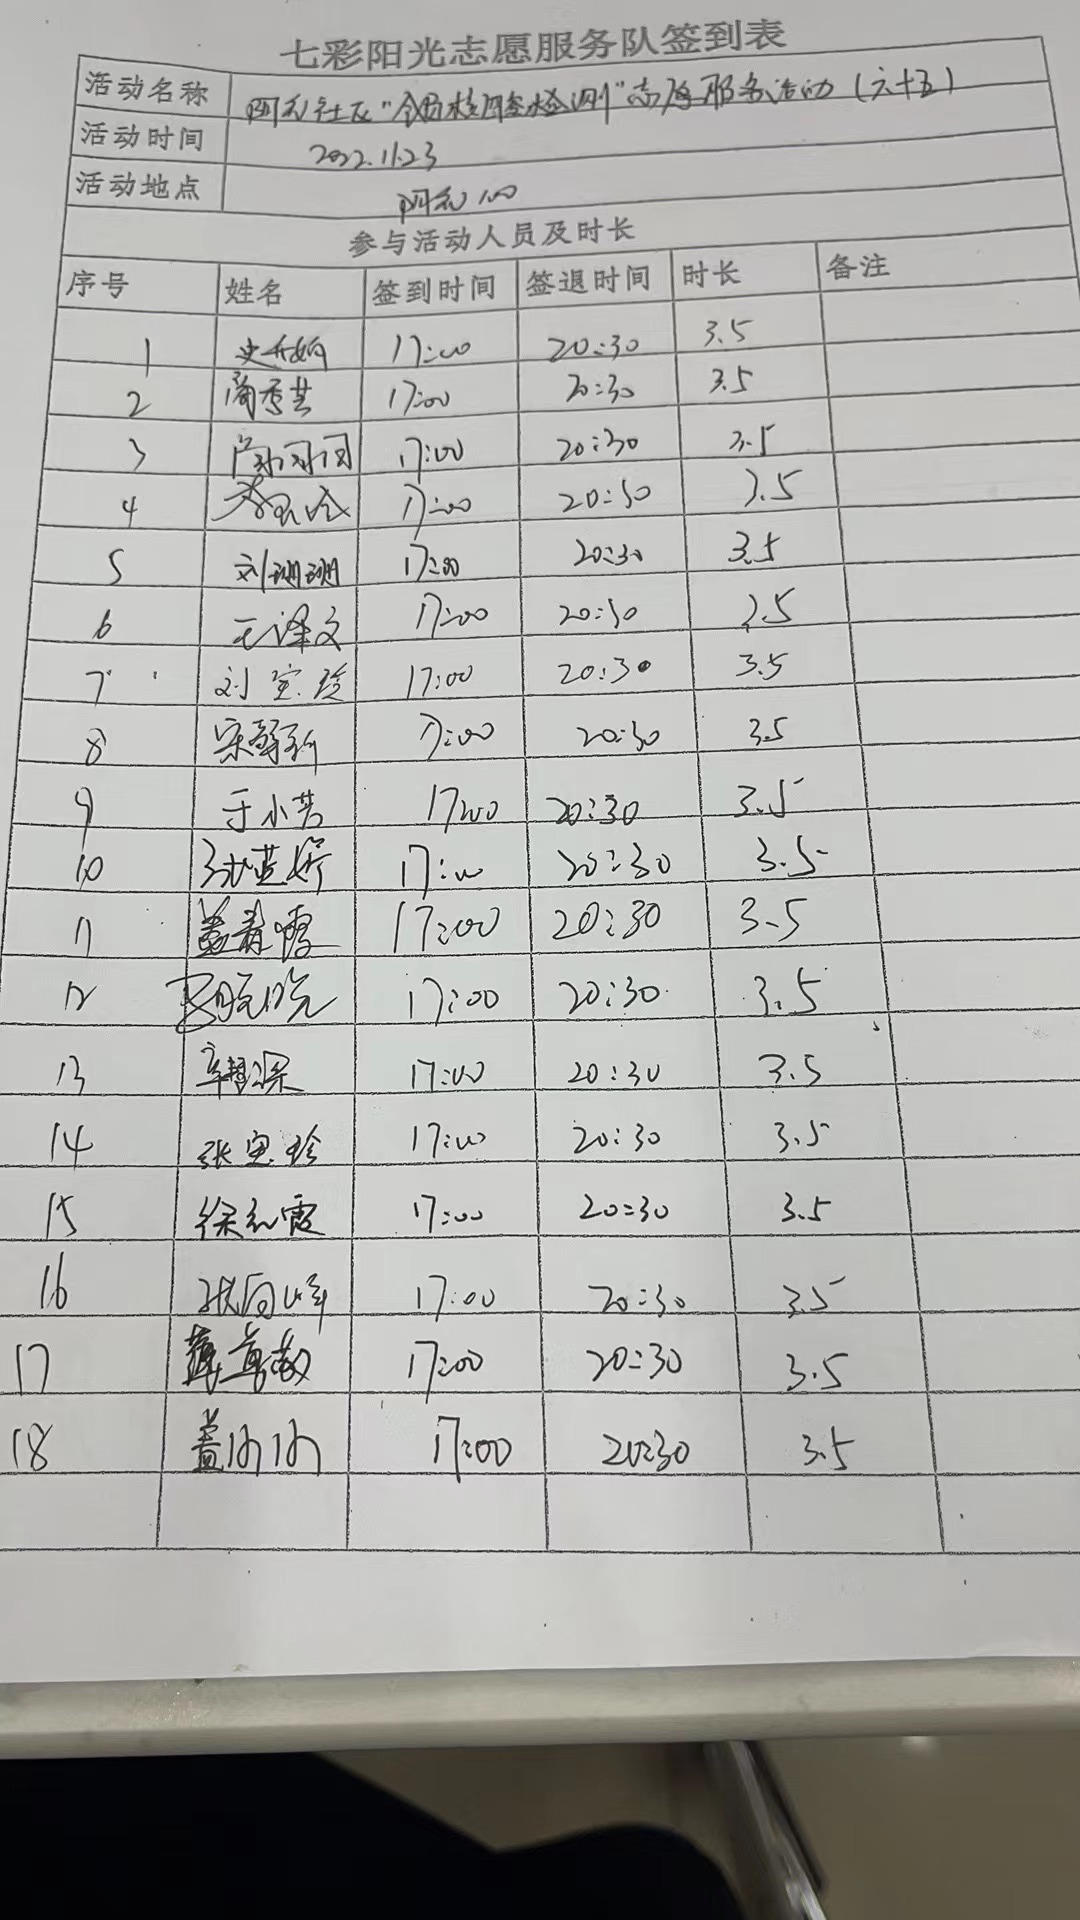 七彩阳光志愿服务队签到表
活动名称 阿尔社区"全员核酸检测"志愿服务活动（六十五）
活动时间 2022.11.23
活动地点
参与活动人员及时长
序号 姓名 签到时间 签退时间 时长 备注
1 17:00 20:30 3.5
2 17:00 20:30 3.5
3 17:00 20:30 3.5
4 17:00 20:30 3.5
5 刘珊珊 17:00 20:30 3.5
6 王译文 17:00 20:30 3.5
7 刘宝珍 17:00 20:30 3.5
8 17:00 20:30 3.5
9 于小芳 17:00 20:30 3.5
10 17:00 20:30 3.5
11 17:00 20:30 3.5
12 17:00 20:30 3.5
13 17:00 20:30 3.5
14 张宝珍 17:00 20:30 3.5
15 17:00 20:30 3.5
16 张向峰 17:00 20:30 3.5
17 17:00 20:30 3.5
18 17:00 20:30 3.5